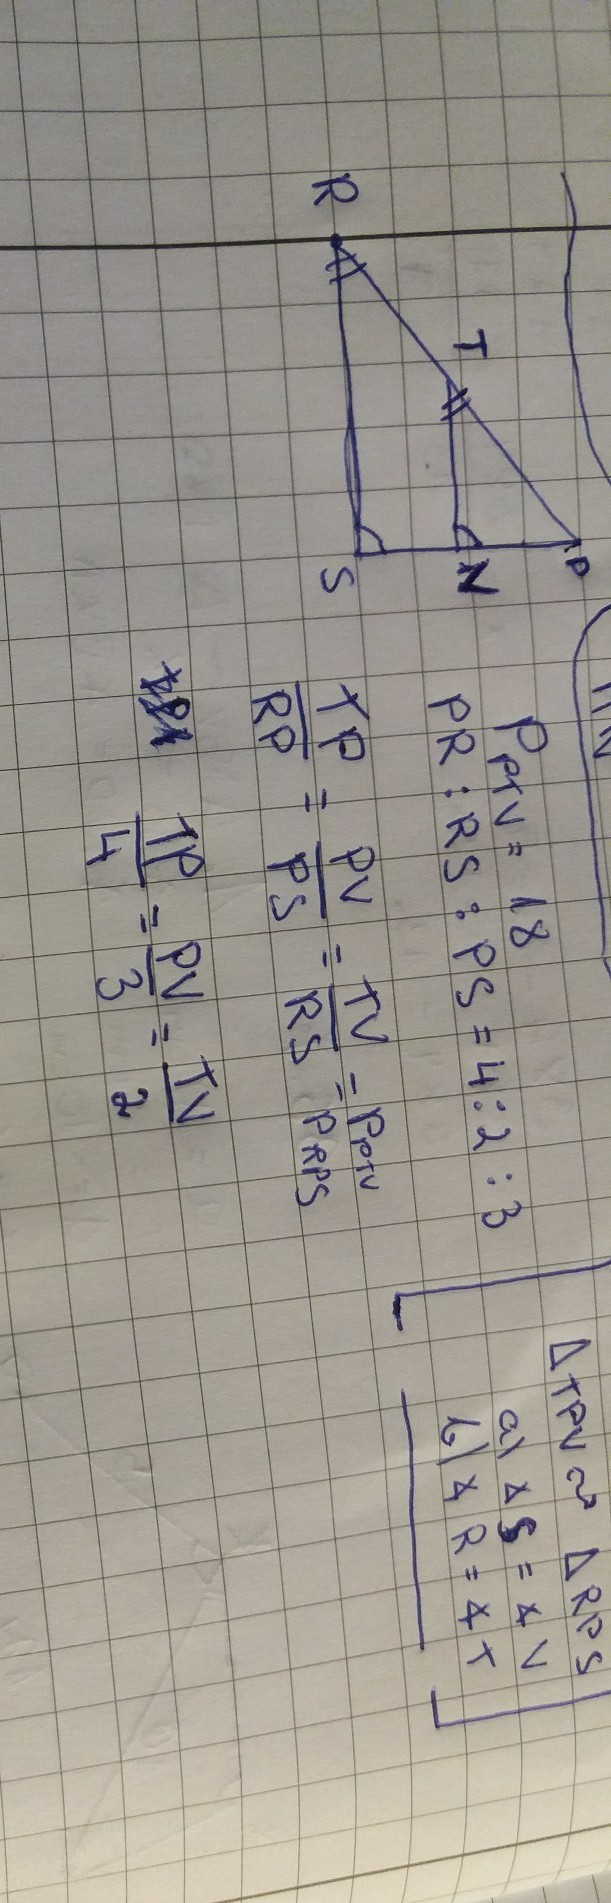 R
T
P
N
S
P PTV = 18
PR : RS : PS = 4 : 2 : 3
TP/RP = PV/PS = TV/RS = P PTV/P RPS
TP/4 = PV/3 = TV/2
ΔTPV ~ ΔRPS
a) ∡S = ∡V
b) ∡R = ∡T